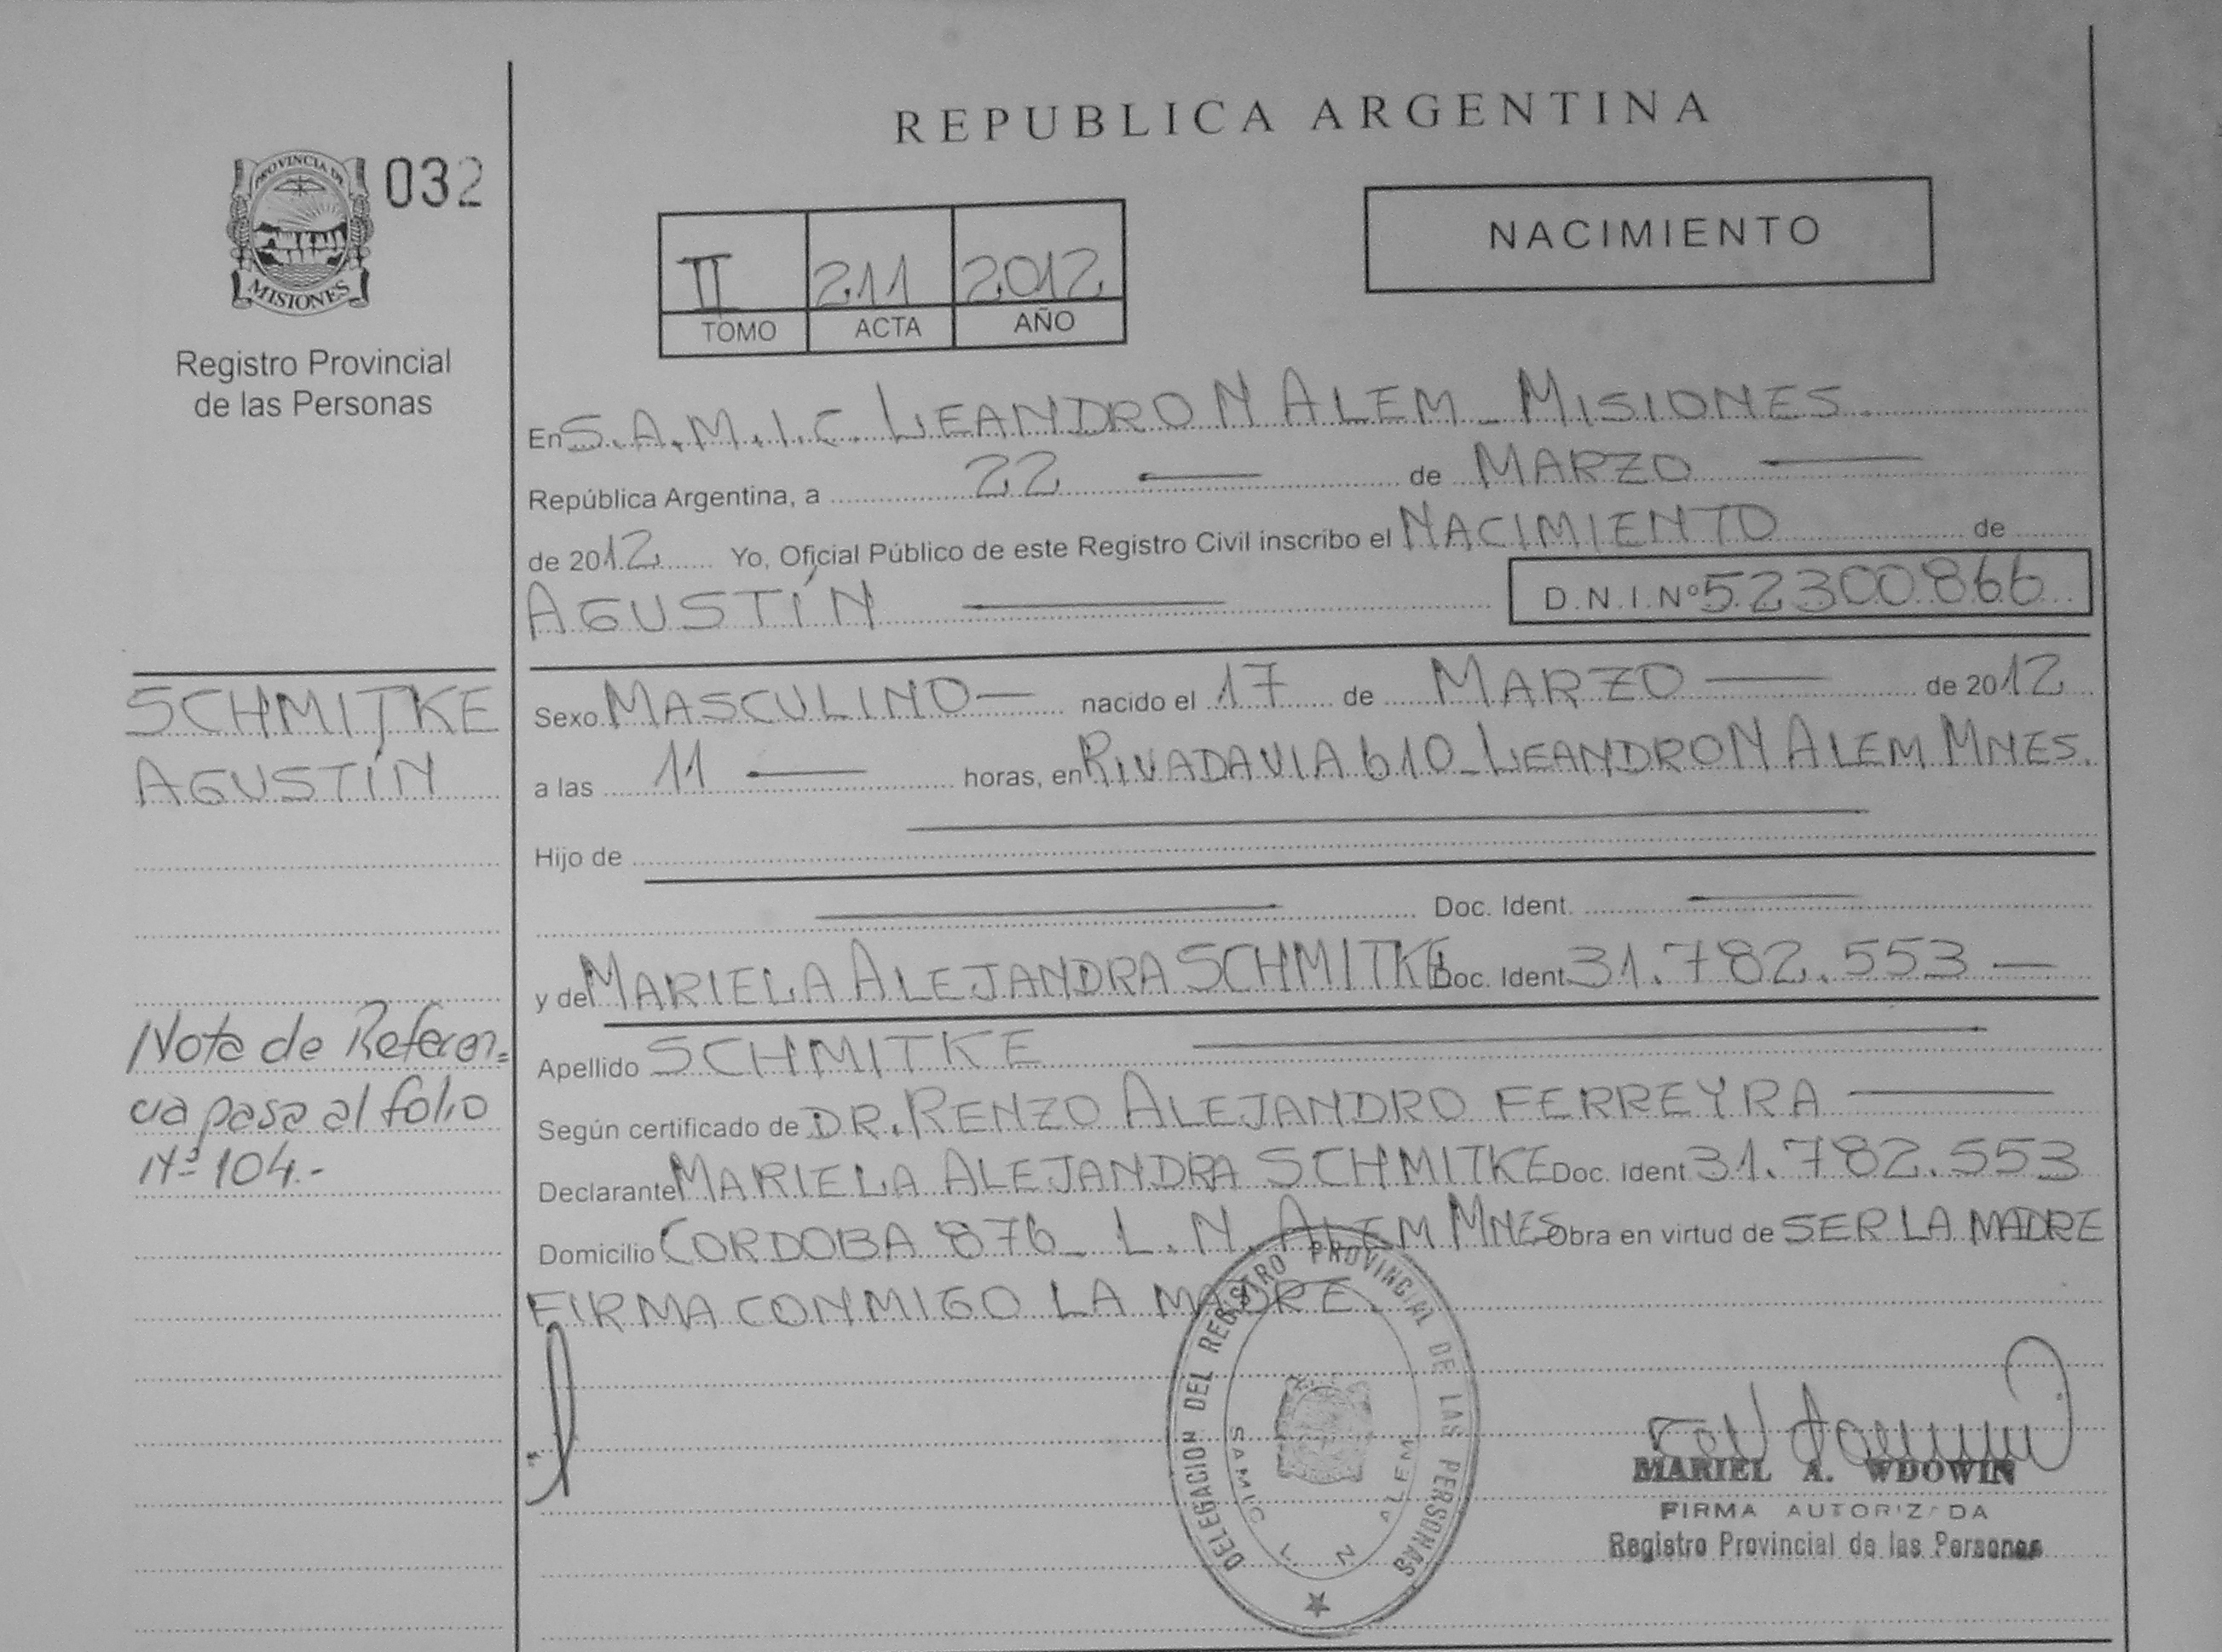 REPUBLICA ARGENTINA
PROVINCIA DE
MISIONES
032
Registro Provincial
de las Personas
II 211 2012
TOMO ACTA AÑO
NACIMIENTO
En S.A.M.I.C. LEANDRO N ALEM - MISIONES.
República Argentina, a 22 de MARZO
de 2012 Yo, Oficial Público de este Registro Civil inscribo el NACIMIENTO de
AGUSTÍN D.N.I.Nº 52300866
SCHMITKE
AGUSTÍN
Sexo MASCULINO nacido el 17 de MARZO de 2012
a las 11 horas, en RIVADAVIA 610 - LEANDRO N ALEM MNES.
Hijo de
Doc. Ident.
y de MARIELA ALEJANDRA SCHMITKE Doc. Ident. 31.782.553
Apellido SCHMITKE
Según certificado de DR. RENZO ALEJANDRO FERREYRA
Declarante MARIELA ALEJANDRA SCHMITKE Doc. Ident 31.782.553
Domicilio CORDOBA 876 - L. N. ALEM MNES Obra en virtud de SER LA MADRE
FIRMA CONMIGO LA MADRE.
Nota de Referen=
cia pasa al folio
Nº 104.-
DELEGACION DEL REGISTRO PROVINCIAL DE LAS PERSONAS
SAMIC L N ALEM
MARIEL A. WDOWIN
FIRMA AUTORIZADA
Registro Provincial de las Personas